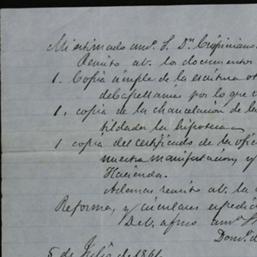 Mi estimado amº. S. Dn. Crispiniano
Remito a V. los documentos
1. Copia simple de la escritura
de capellanias por lo que
1. copia de la chancelacion de la
tildada la hipoteca
1 copia del certificado de la ofic
nuestra manifestacion, y
Hacienda.
Ademas remito a V. la
Reforma, y circulares espedid
De V. afmo amº
5 de Julio de 1861